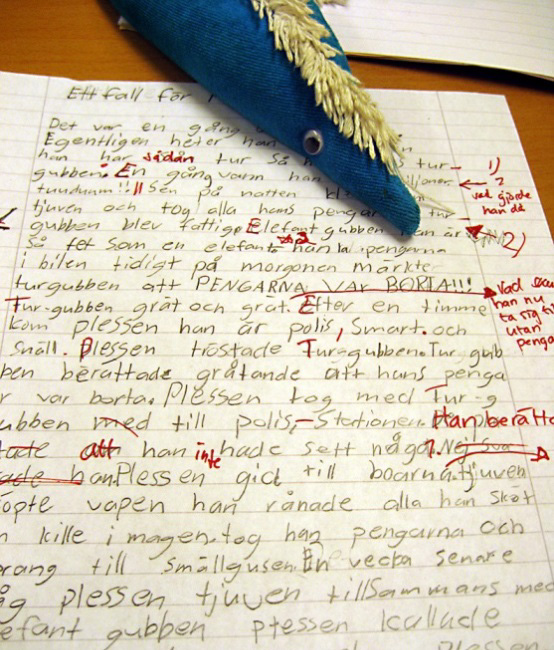 Ett fall för
Det var en gång
Egentligen heter han
han har sådan tur Så h s tur-
gubben. En gång vann han iljoner
tuudumm!!! Sen på natten kl
tjuven och tog alla hans pengar tur
gubben blev fattig. Elefant gubben han är
Så fet som en elefant han la pengarna
i bilen tidigt på morgonen märkte
turgubben att PENGARNA VAR BORTA!!!
Tur-gubben grät och grät. Efter en timme
kom plessen han är polis, Smart och
snäll. Plessen tröstade Tur-gubben. Tur gub
ben berättade gråtande att hans penga
r var borta. Plessen tog med Tur-g
ubben med till polis-Stationen. Han berätta
tade att han inte hade sett någ
han Plessen gick till boarna. tjuven
öpte vapen han rånade alla han sköt
n kille i magen. tog han pengarna och
prang till smällgusen. En vecka senare
åg plessen tjuven tillSammans med
efant gubben plessen kallade
plessen
1)
?
vad gjorde
han då
2)
Vad
han nu
ta sig till
utan
pengar